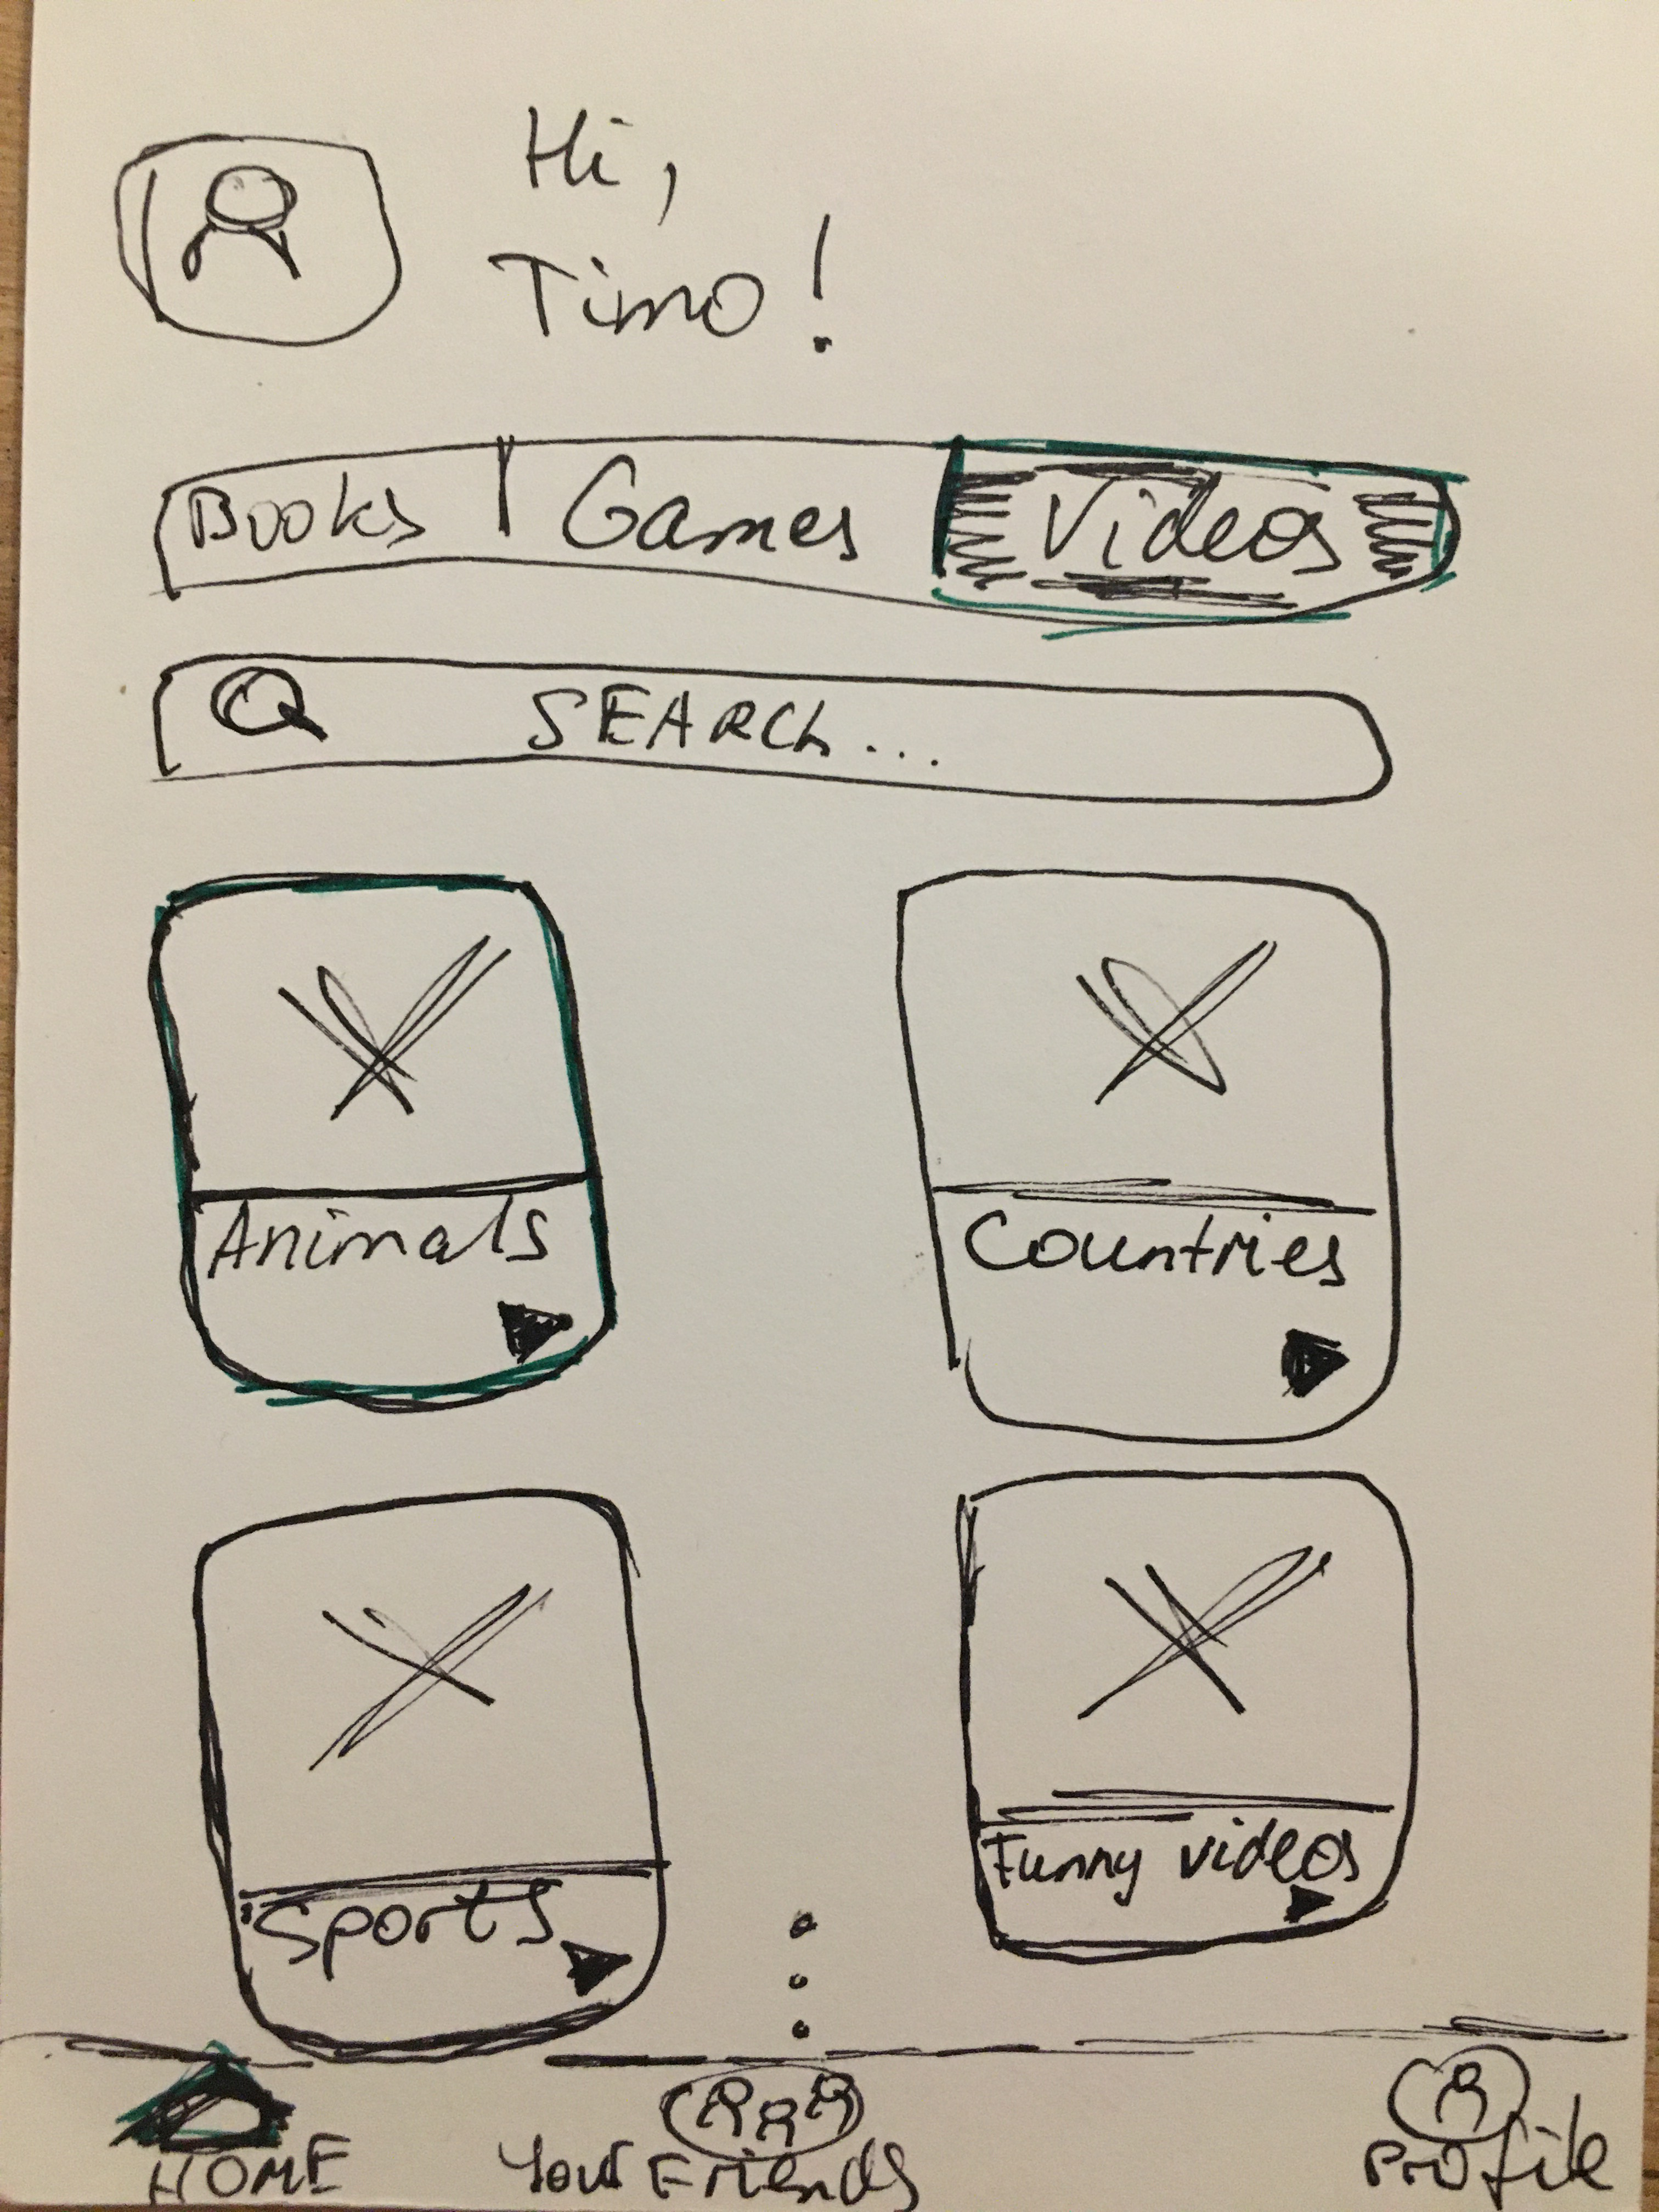 Hi,
Timo!
Books Games Videos
SEARCh...
Animals
Countries
Sports
Funny videos
HOME
Your Friends
Profile